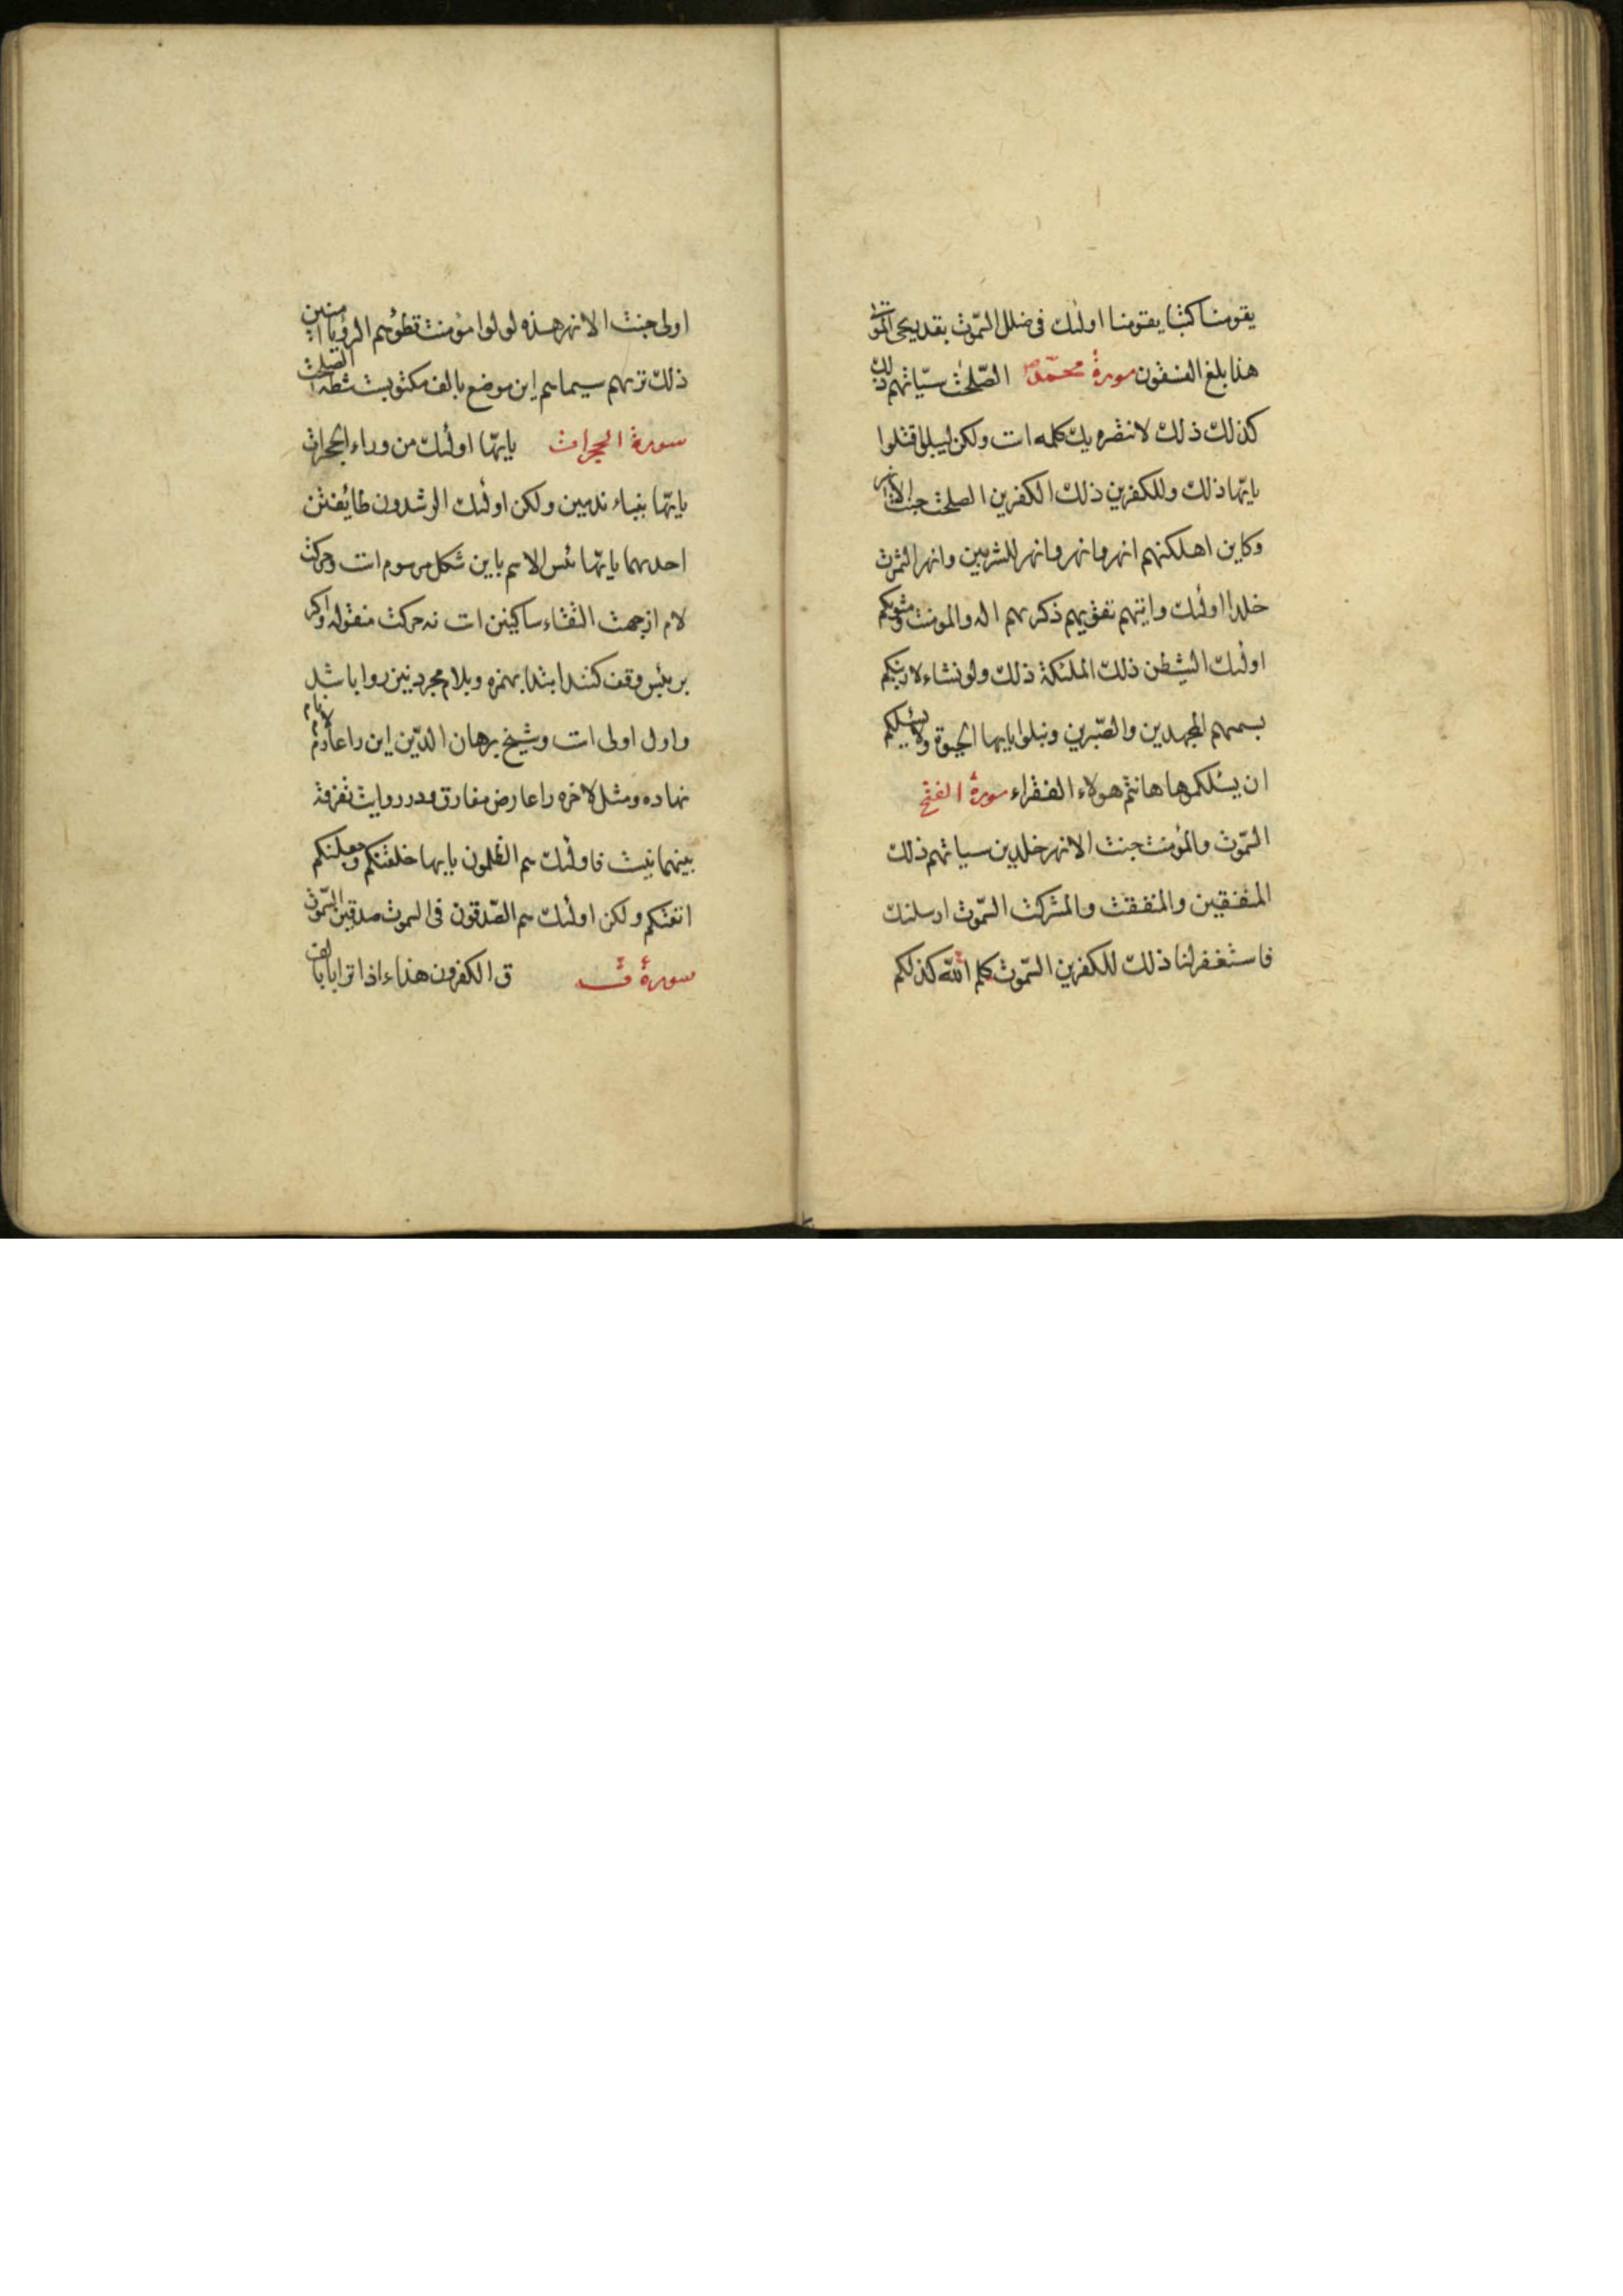 يقومنا كتبا يقومنا اولئك فى ضلل السموت بقدر يحى الموتى
هذا بلغ الفسقون سورة محمد الصلحت سياتهم ذلك
كذلك ذلك لانتصر يك كلمه است ولكن ليبلوا قتلوا
يايها ذلك وللكفرين ذلك الكفرين الصلحت جنت الانهر
وكاين اهلكنهم انهر وانهر وانهر للشربين وانهر الثمرت
خلدا اولئك واتيهم تقويهم ذكريهم اله والمومنت ومثويكم
اولئك الشيطن ذلك الملئكة ذلك ولو نشاء لارينكم
بسميهم المجهدين والصبرين ونبلوا يايها الحيوة ولا يسئلكم
ان يسئلكموها هانتم هولاء الفقراء سورة الفتح
السموت والمؤمنت جنت الانهر خلدين سياتهم ذلك
المنفقين والمنفقت والمشركت السموت ارسلنك
فاستغفر لنا ذلك للكفرين السموت كلم الله كذلكم
اولى جنت الانهر هذه لولوا مؤمنت تطؤهم الرؤيا امنين
ذلك تريهم سيماهم اين موضع بالف مكتوبست شطه الصلحت
سورة الحجرات يايها اولئك من وراء الحجرات
يايها بنباء ندمين ولكن اولئك الرشدون طائفتن
احديهما يايها بئس الاسم باين شكل مرسوم است وحركت
لام از جهت التقاء ساكنين است نه حركت منقوله واكر
بر بئس وقف كنند ابتدا بهمزه وبلام مجرد نيز روا باشد
واول اولى است وشيخ برهان الدين اين را عادم لام
نهاده ومثل لاخره را عارض مفارق ودر روايت تفرقه
بينهما نيست فاولئك هم الظلمون يايها خلقنكم وجعلنكم
اتقيكم ولكن اولئك هم الصدقون فى السموت صدقين السموت
سورة ق ق الكفرون هذا ءاذا ترابا بالف